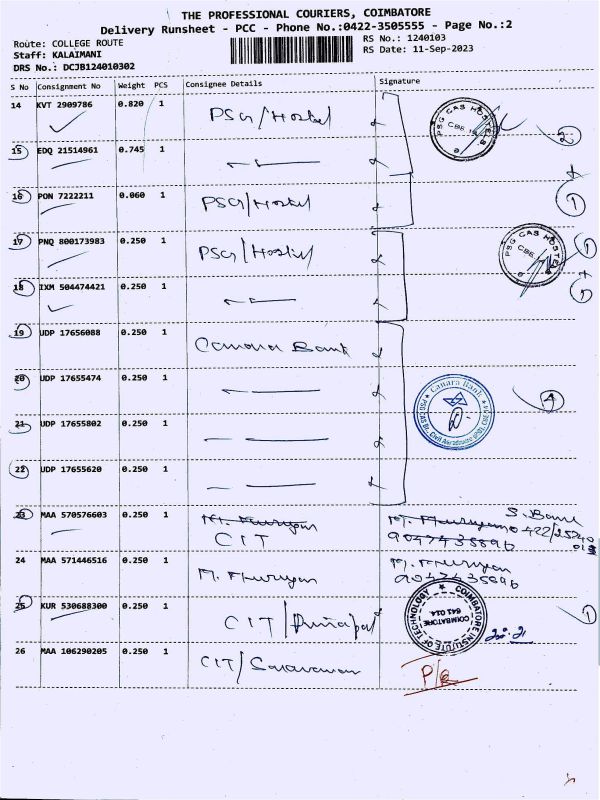 THE PROFESSIONAL COURIERS, COIMBATORE
Delivery Runsheet - PCC - Phone No.:0422-3505555 - Page No.:2
Route: COLLEGE ROUTE
RS No.: 1240103
Staff: KALAIMANI
RS Date: 11-Sep-2023
DRS No.: DCJB124010302
S No Consignment No Weight PCS Consignee Details Signature
14 KVT 2909786 0.820 1 PSG/Hostel
PSG CAS HOSTEL
CBE.14
2
15 EDQ 21514961 0.745 1
16 PON 7222211 0.060 1 PSG/Hostel
1
17 PNQ 800173983 0.250 1 PSG/Hostel
PSG CAS HOSTEL
1
18 IXM 504474421 0.250 1
1
19 UDP 17656088 0.250 1 Canara Bank
20 UDP 17655474 0.250 1
Canara Bank
4
21 UDP 17655802 0.250 1
22 UDP 17655620 0.250 1
23 MAA 570576603 0.250 1
CIT
24 MAA 571446516 0.250 1 M. Murugan
M. Murugan
25 KUR 530688300 0.250 1 CIT/Principal
COIMBATORE INSTITUTE OF TECHNOLOGY
COIMBATORE
641 014
1
26 MAA 106290205 0.250 1 CIT/Saravanan